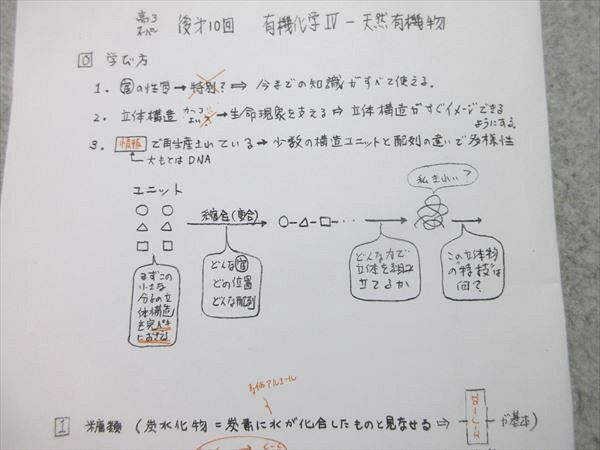 高3
スーパー
後才10回 有機化学Ⅳ－天然有機物
0 学び方
1. 官の性質→特別？⇒今までの知識がすべて使える.
2. 立体構造 かっこよい→生命現象を支える⇒立体構造がすぐイメージできる
ようにする.
3. 情報で再生産されている→少数の構造ユニットと配列の違いで多様性
大もとはDNA
ユニット
縮合(重合)
私きれい？
○－△－□－・・
まずこの
小さな
分子の立
体構造
を完ペキ
におさえる
どんな官
どの位置
どんな配列
どんな力で
立体を組み
立てるか
この立体物
の“特技”は
何？
多価アルコール
1 糖類 (炭水化物＝炭素に水が化合したものと見なせる⇒ H-C-OH が基本)